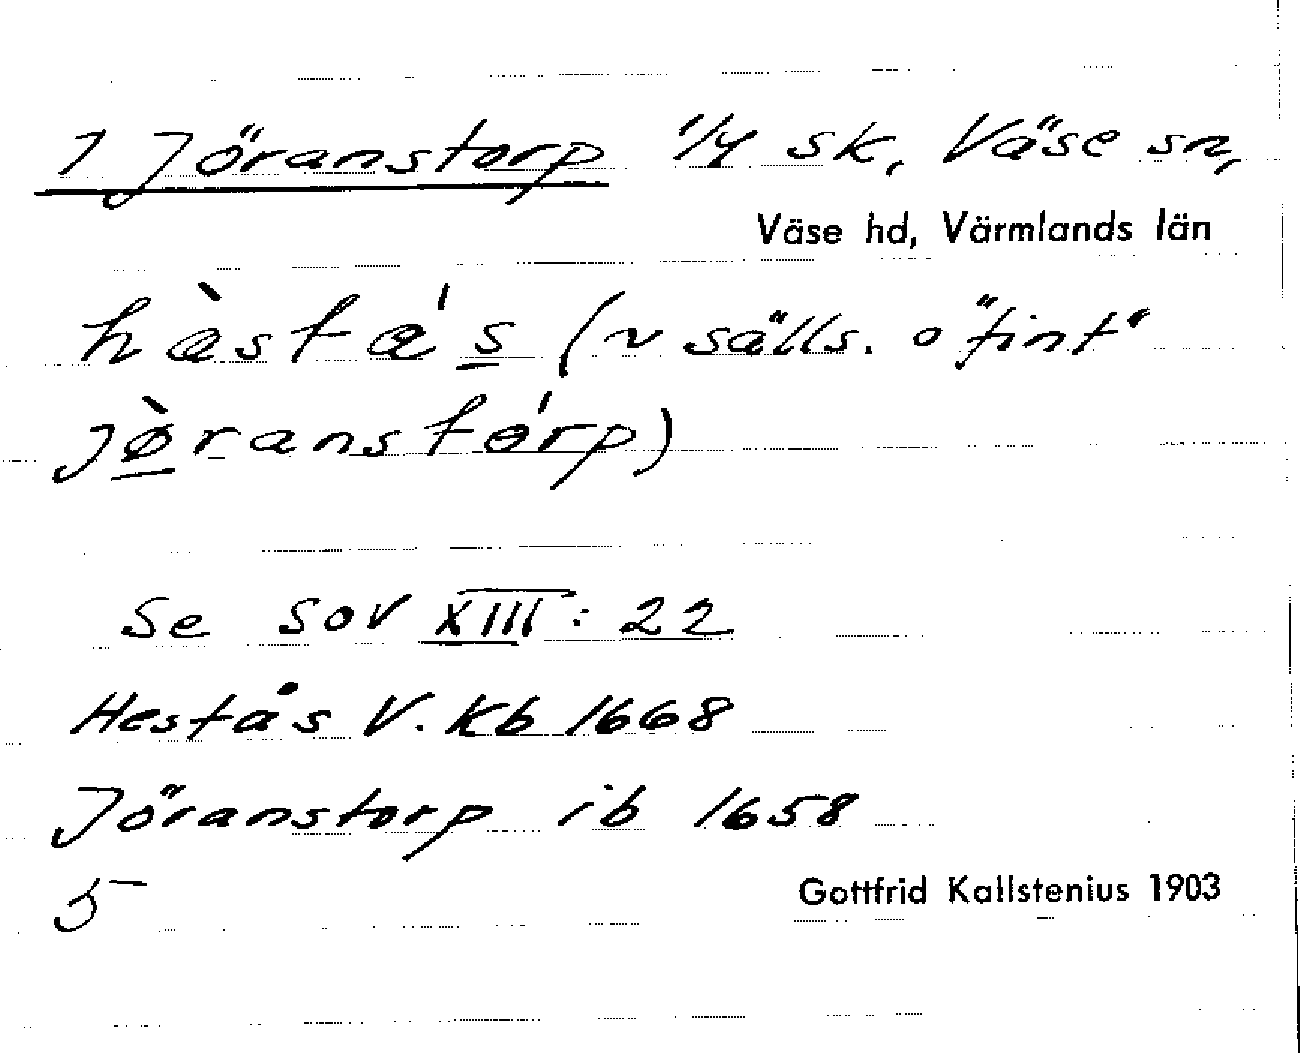 1 Jöranstorp 1/4 sk, Väse sn,
Väse hd, Värmlands län
hæ̀stá's (~ sälls. o "fint"
jø̀ranstórp)
Se SOV XIII: 22
Hestås V. Kb 1668
Jöranstorp ib 1658
5
Gottfrid Kallstenius 1903